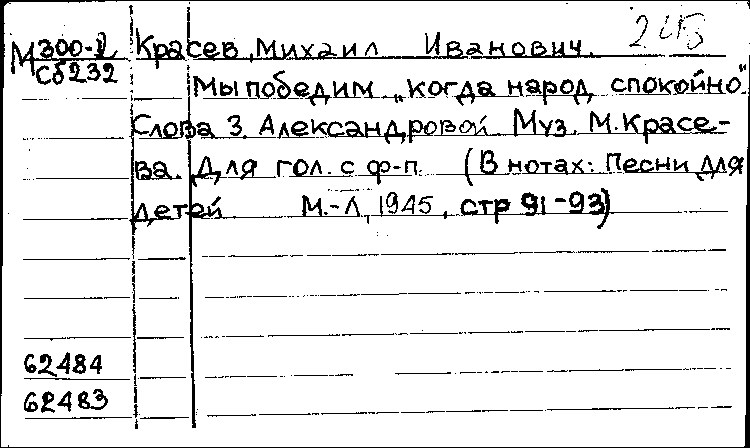 М300-2 Красев, Михаил Иванович.
Сб232
Мы победим „когда народ спокойно"
Слова З. Александровой Муз. М. Красе-
ва. Для гол. с ф-п. (В нотах: Песни для
детей М.-Л, 1945, стр 91-93)
62484
62483